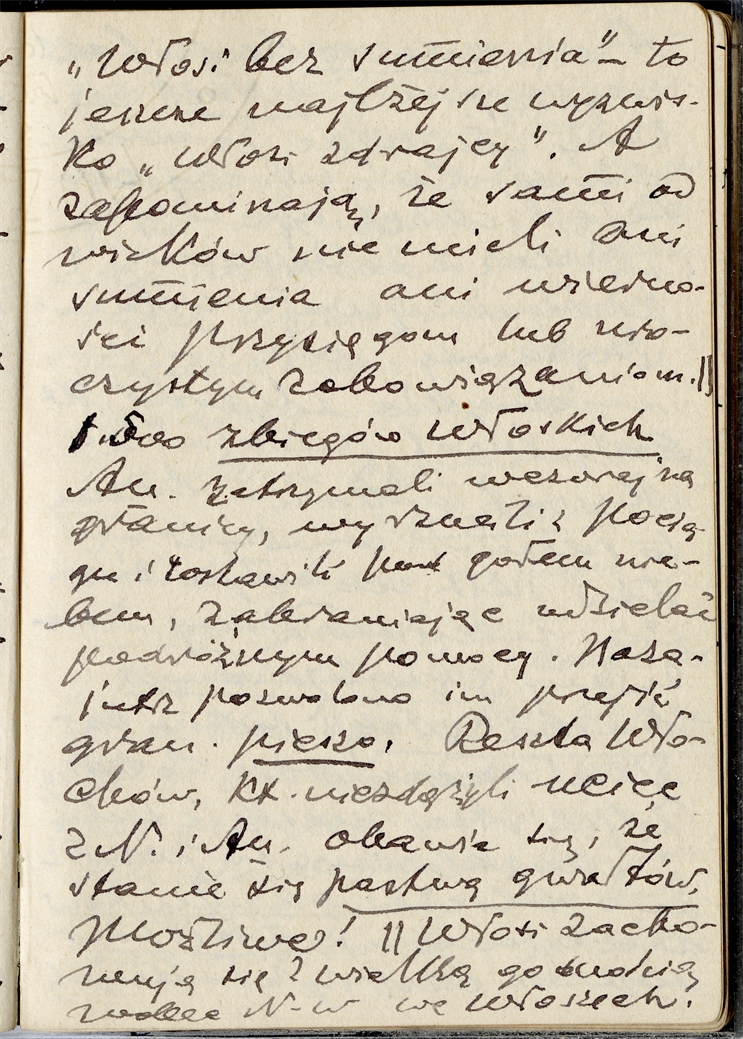 „Włosi bez sumienia" – to
jeszcze najlżejsze wyzwis-
ko „Włosi zdrajcy". A
zapominają, że sami od
wieków nie mieli ani
sumienia ani wierno-
ści przysięgom lub uro-
czystym zobowiązaniom. ||
zbiegów włoskich
Au. zatrzymali wczoraj na
granicy, wyrzucili z pocią-
gu i zostawili pod gołem nie-
bem, zabraniając udzielać
podróżnym pomocy. Naza-
jutrz pozwolono im przejść
gran. pieszo. Reszta Wło-
chów, kt. nie zdążyli uciec
z N. i Au. obawia się, że
stanie się pastwą gwałtów.
Możliwe! || Włosi zacho-
wują się z wielką godnością
wobec N-w we Włoszech.